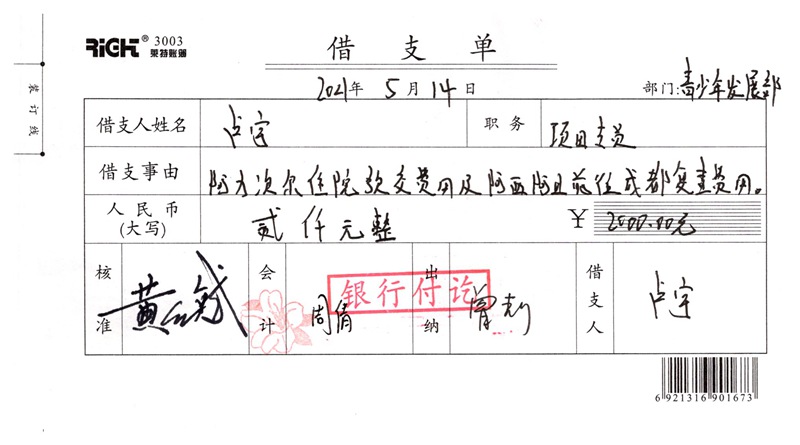 RIGHT® 3003
莱特账簿
借支单
2021年5月14日
部门:青少年发展部
装订线
借支人姓名 卢宇 职务 项目专员
借支事由 阿方次尔住院预交费用及阿西阿且前往成都复查费用。
人民币(大写) 贰仟元整 ¥ 2000.00元
核准 黄 会计 周倩 出纳 曾 借支人 卢宇
银行付讫
6 921316 901673